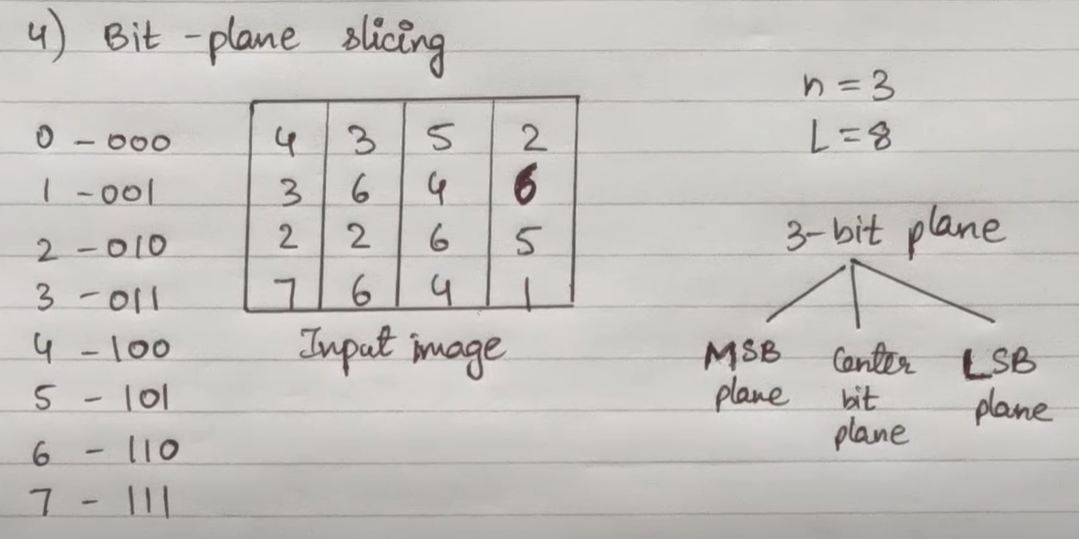 4) Bit-plane slicing
n = 3
L = 8
0 - 000
1 - 001
2 - 010
3 - 011
4 - 100
5 - 101
6 - 110
7 - 111
4 3 5 2
3 6 4 6
2 2 6 5
7 6 4 1
Input image
3-bit plane
MSB plane
Center bit plane
LSB plane